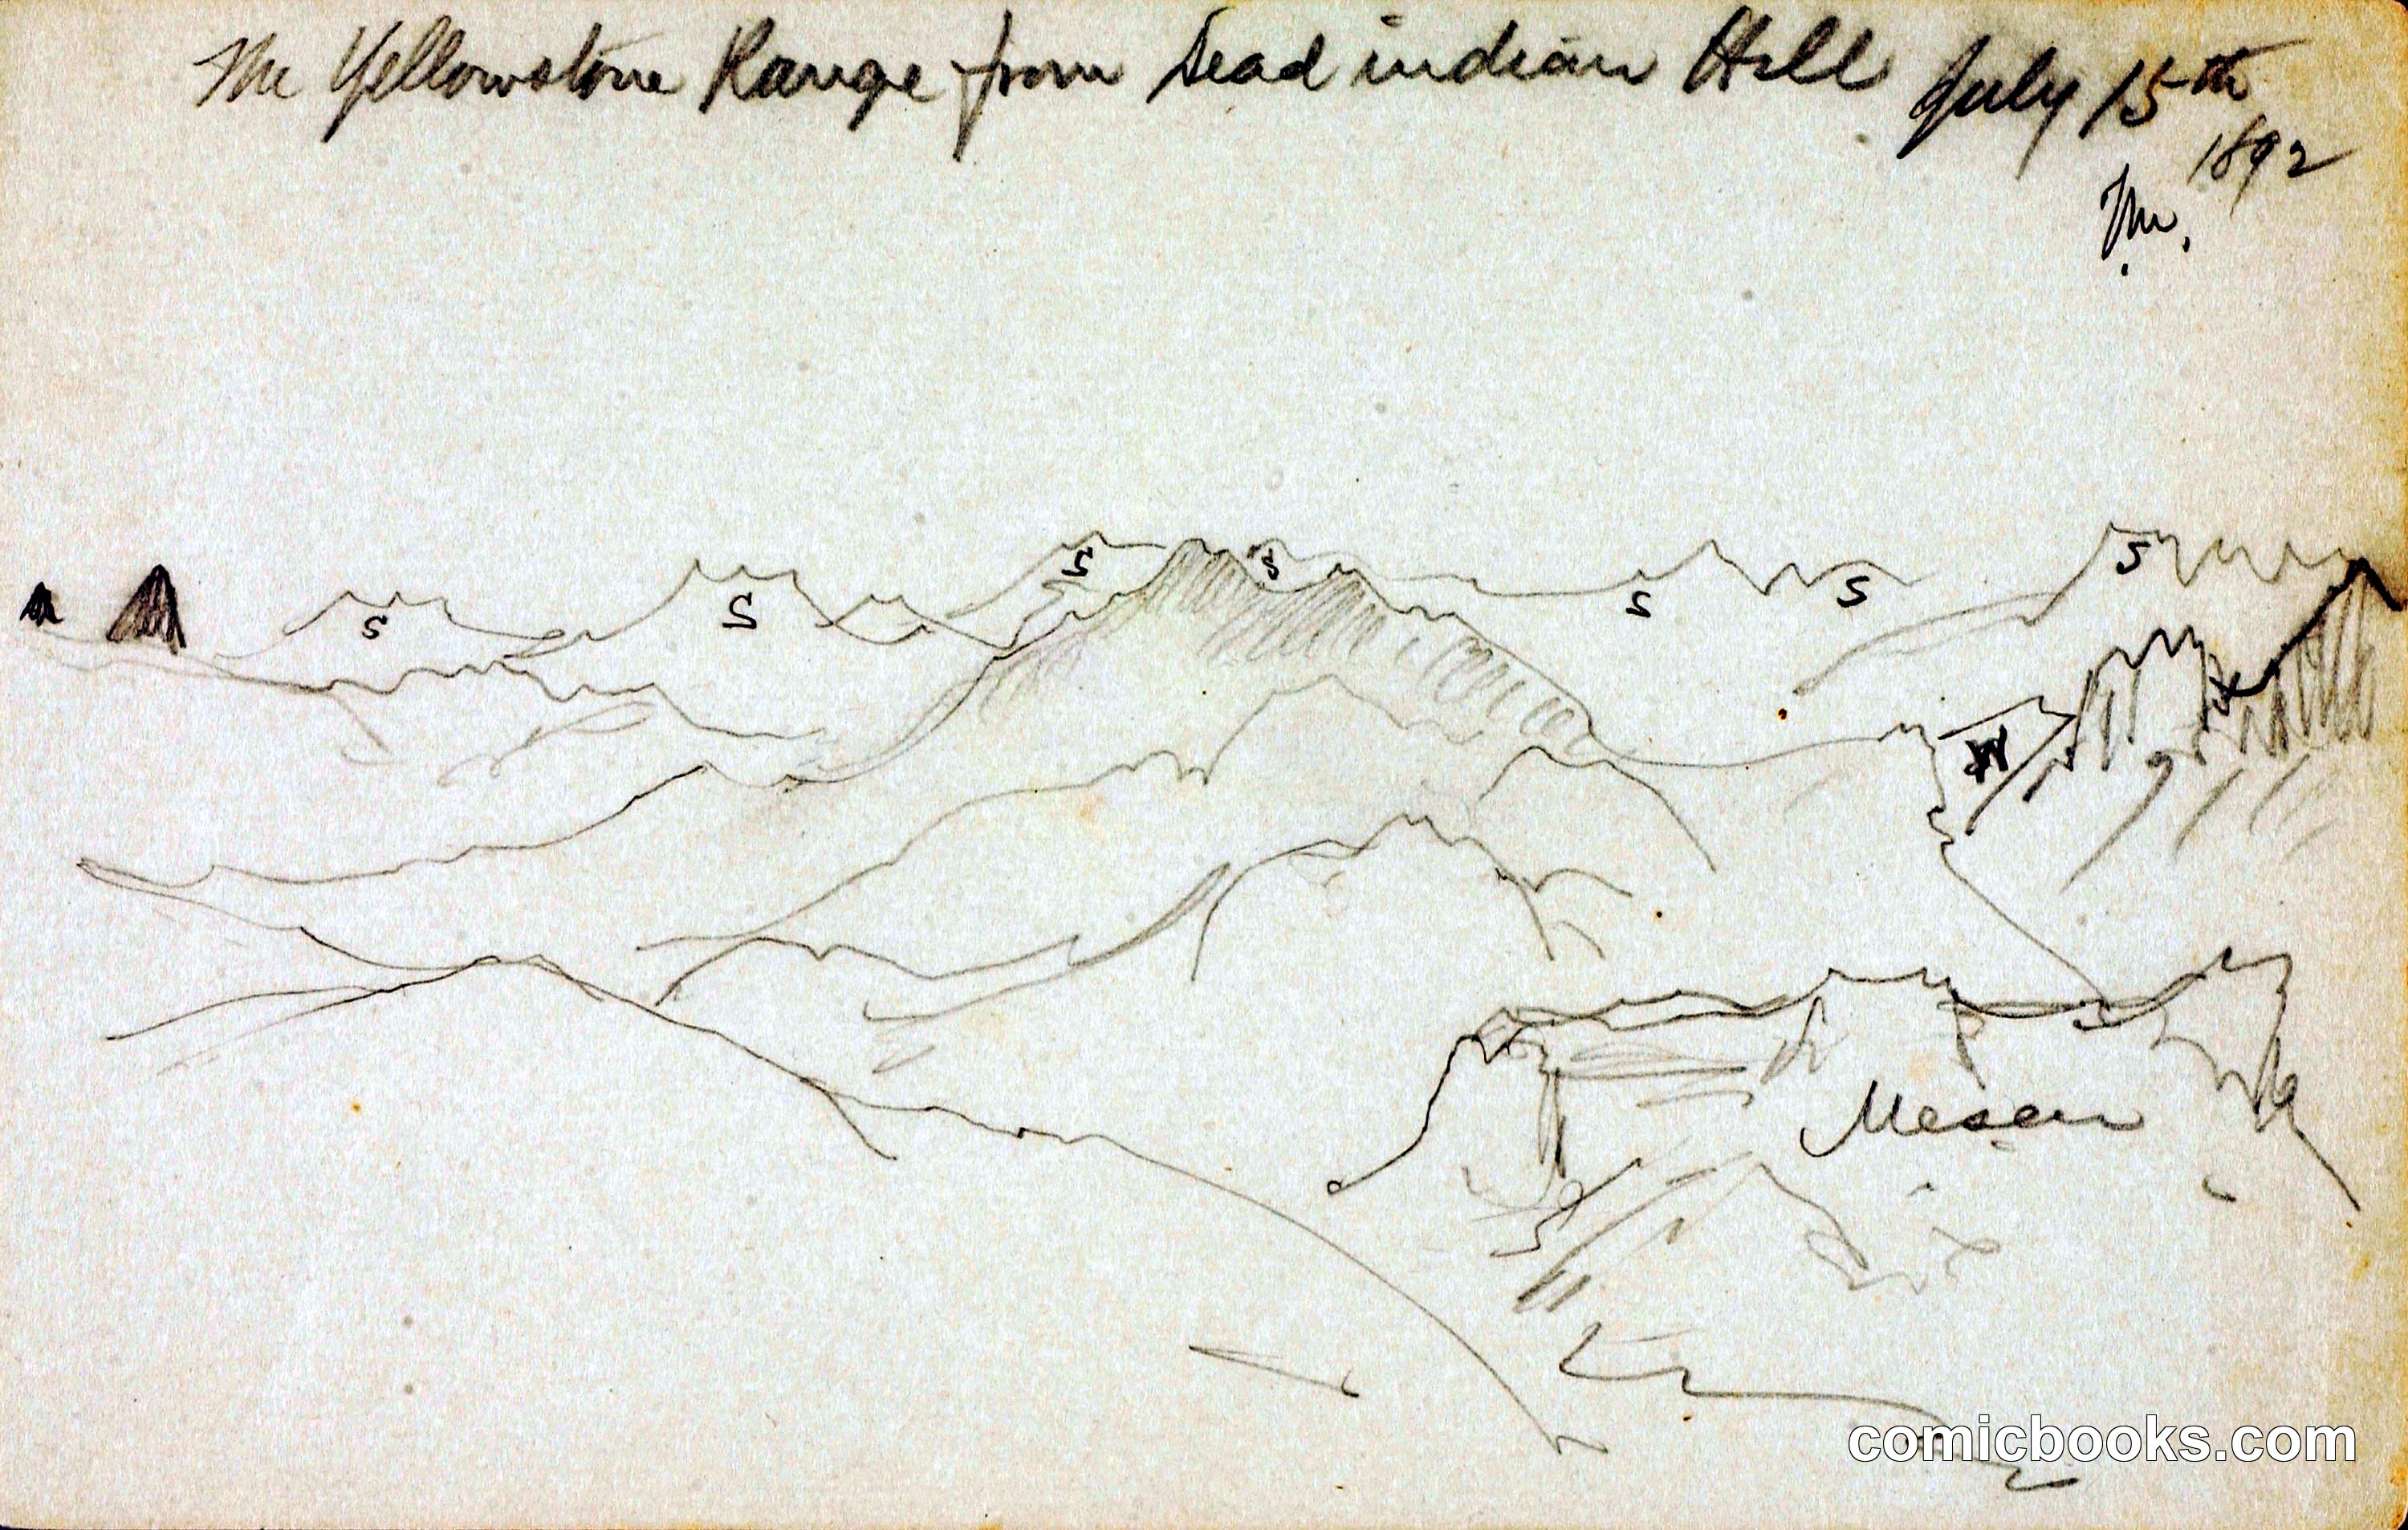 The Yellowstone Range from Dead indian Hill July 15th
1892
TM.
S S S S S S S
M
Mesa
comicbooks.com